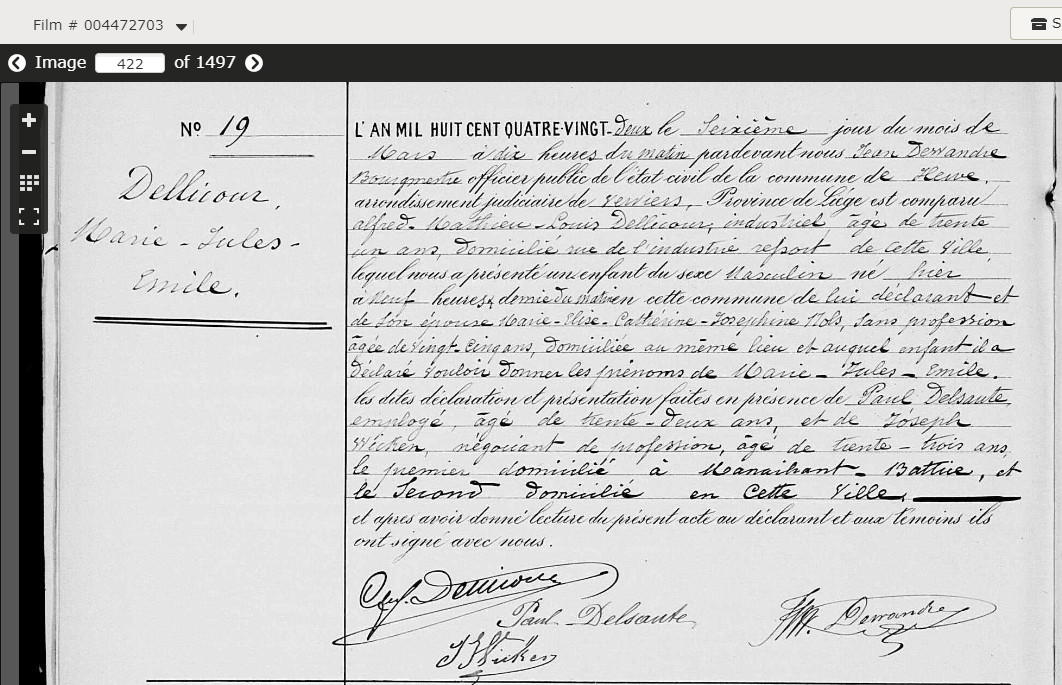 Film # 004472703
S
Image 422 of 1497
Nº 19
Dellicour,
Marie - Jules -
Emile.
L'AN MIL HUIT CENT QUATRE-VINGT-Deux le Seizième jour du mois de
Mars à dix heures du matin pardevant nous Jean Dewandre
Bourgmestre officier public de l'état civil de la commune de Herve,
arrondissement judiciaire de Verviers, Province de Liége est comparu
alfred-Mathieu-Louis Dellicour, industriel, âgé de trente
un ans, domicilié rue de l'industrie ressort de Cette Ville,
lequel nous a présenté un enfant du sexe Masculin né hier
à Neuf heures & demie du matin en cette commune de lui déclarant et
de son épouse Marie-Elise-Cathérine-Josephine Nols, Sans profession
âgée de Vingt-Cinq ans, Domiciliée au même lieu et auquel enfant il a
déclaré Vouloir donner les prénoms de Marie - Jules - Emile.
les dites déclaration et présentation faites en présence de Paul Delsaute,
employé, âgé de trente-deux ans, et de Joseph
Wicken, négociant de profession, âgé de trente-trois ans,
le premier domicilié à Manaihant-Battice, et
le Second Domicilié en Cette Ville,
et apres avoir donné lecture du présent acte au déclarant et aux témoins ils
ont signé avec nous.
Alf. Dellicour
Paul Delsaute
Dewandre
Wicken